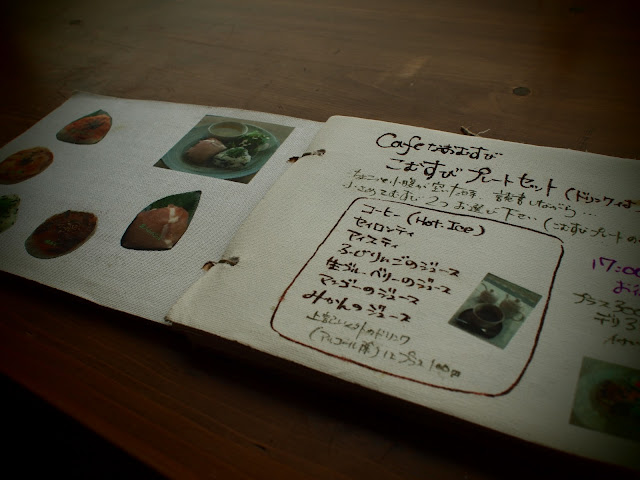 Cafeなおむすび
こむすびプレートセット(ドリンク
ちょこっと小腹が空いた時、読書しながら…
小さめでむすび2つお選び下さい(こむすびプレートの
コーヒー(Hot・Ice)
セイロンティ
アイスティ
ふじりんごのジュース
生ブルーベリーのジュース
マンゴーのジュース
みかんのジュース
上記以外のドリンク
(アルコール除)はプラス100円
17:00
プラス300
デリ3